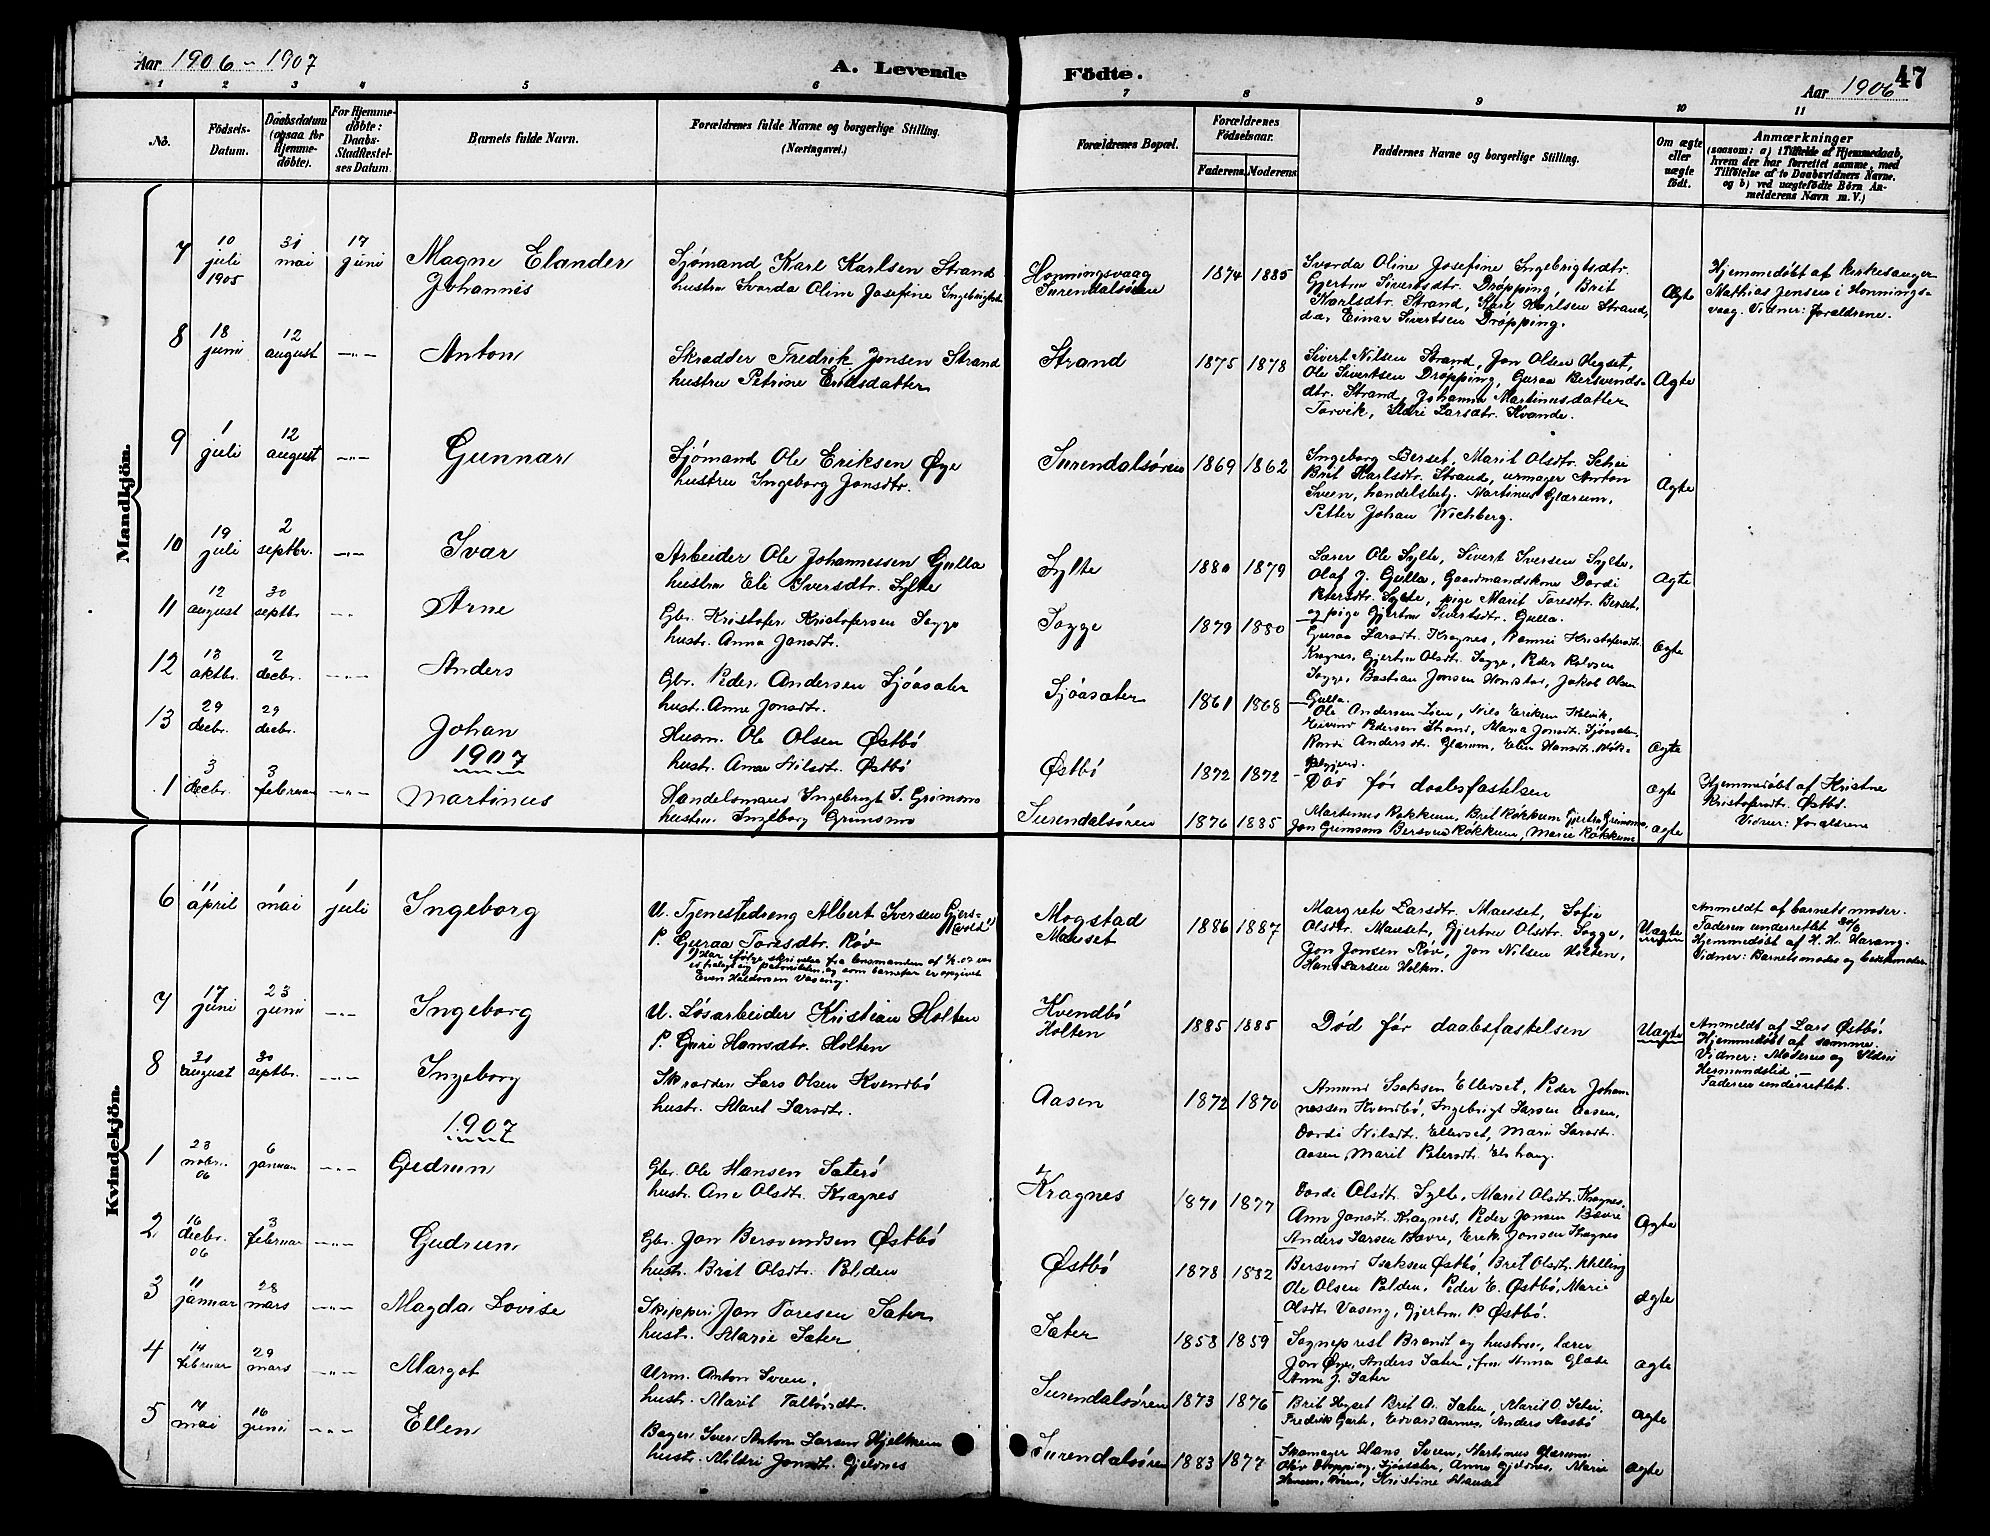 Aar 1906 - 1907
A. Levende
Födte.
Aar 1906
47
1 2 3 4 5 6 7 8 9 10 11
No.
Födsels-
Datum.
Daabsdatum
(ogsaa for
Hjemme-
döbte).
For Hjemme-
døbte:
Daabs-
Stadfestel-
ses Datum.
Barnets fulde Navn.
Forældrenes fulde Navne og borgerlige Stilling.
(Næringsvei.)
Forældrenes Bopæl.
Forældrenes
Födselsaar.
Faderens. Moderens.
Faddernes Navne og borgerlige Stilling.
Om ægte
eller
uægte
födt.
Anmærkninger
(saasom: a) i Tilfælde af Hjemmedaab,
hvem der har forrettet samme, med
Tilföielse af to Daabsvidners Navne,
og b) ved uægtefödte Börn An-
melderens Navn m. V.)
Mandkjön.
7
10
juli
1905
31
mai
17
juni
Magne Elander
Johannes
Sjømand Karl Karlsen Strand
hustru Svorda Oline Josefine Ingebrigtsdtr
Honningsvaag
Surendalsøren
1874 1885
Svorda Oline Josefine Ingebrigtsdtr.
Gjertru Sivertsdtr. Drøpping, Brit
Karlsdtr. Strand, Karl Karlsen Strand,
da, Einar Sivertsen Drøpping.
Ægte
Hjemmedøbt af kirkesanger
Mathias Jensen i Honnings-
vaag. Vidner: forældrene.
8
18
juni
12
august
-"-
Anton
Skrædder Fredrik Jonsen Strand
hustru Petrine Eriksdatter
Strand
1875 1878
Sivert Nilsen Strand, Jon Olsen Øegset,
Ole Sivertsen Drøpping, Guraa Bersvends-
dtr. Strand, Johanna Martinusdatter
Torvik, Lars­dtr. Kvande.
Ægte
9
1
juli
12
august
-"-
Gunnar
Sjömand Ole Eriksen Øye
hustru Ingeborg Jonsdtr.
Surendalsøren
1869 1862
Ingeborg Berset, Marit Olsdtr. Schei
Brit Karlsdtr. Strand, urmager Anton
Sveen, handelsbetj. Martinus Glærum,
Petter Johan Wichberg.
Ægte
10
19
juli
2
septbr.
-"-
Ivar
Arbeider Ole Johannessen Gulla
hustru Eli Iversdtr. Sylte
Sylte
1880 1879
Lærer Ole Sylte, Sivert Iversen Sylte,
Olaf J. Gulla, Gaardmandskone Dordi
Petersdtr. Sylte, pige Marit Toresdtr. Berset,
og pige Gjertru Sivertsdtr. Gulla.
Ægte
11
12
august
30
septbr.
-"-
Arne
Gbr. Kristofer Kristofersen Sogge
hustr. Anna Jonsdtr.
Sogge
1879 1880
Guraa Larsdtr. Kragnes, Kristofersdtr.
Kragnes, Gjertru Olsdtr. Sogge, Peder
Sogge, Bastian Jonsen Honstad, Jakob Olsen
Gulla.
Ægte
12
13
oktbr.
2
decbr.
-"-
Anders
Gbr. Peder Andersen Sjøasæter
hust. Anne Jonsdtr.
Sjøasæter
1861 1868
Ole Andersen, Nils Eriksen,
Eivind Pedersen Strand, Maria Jonsdtr. Sjøasæter,
Andersdtr. Glærum, Elen Hansdtr.
Ægte
13
29
decbr.
29
decbr.
Johan
Husm. Ole Olsen Østbö
hust. Anne Nilsdtr. Østbö
Østbö
1872 1872
Död før daabsfæstelsen
Ægte
Hjemmedøbt af Kristine
Kristofersdtr. Østbö.
Vidner: forældrene
1907
1
3
decbr.
3
februar
-"-
Martinus
Handelsmand Ingebrigt J. Grimsmo
hustru Ingeborg Grimsmo
Surendalsøren
1876 1885
Martinus Røkkum, Brit Røkkum, Gjertru Grimsmo,
Jon Grimsmo Bersvend Røkkum, Marie Røkkum
Ægte
Kvindekjön.
6
11
april
1
mai
1
juli
Ingeborg
U. Tjenestedreng Albert Iversen Gjers-
vold
P. Guraa Toresdtr. Røv
Har ifølge skrivelse fra lensmanden af
og som barnefar er opgivet
Even Haldorsen Vaseng.
Mogstad
Mauset
1886 1887
Margrete Larsdtr. Mauset, Sofie
Olsdtr. Mauset, Gjertru Olsdtr. Sogge,
Jon Jonsen Røv, Jon Nilsen Holten,
Hans Larsen Holten.
Uægte
Anmeldt af barnets moder.
Faderen underrettet 30/6
Hjemmedøbt af H. H. Harang.
Vidner: Barnets moder og bedstemoder.
7
17
juni
23
juni
-"-
Ingeborg
U. Løsarbeider Kristian Holten
P. Guri Hansdtr. Holten
Kvendbö
Holten
1885 1885
Död før daabsfæstelsen
Uægte
Anmeldt af Lars Østbö.
Hjemmedøbt af samme.
Vidner: Moderen og Ildri
Hermundslid.
Faderen underrettet.
8
21
august
30
septbr.
-"-
Ingeborg
Skrædder Lars Olsen Kvendbö
hustr. Marit Larsdtr.
Aasen
1872 1870
Amund Isaksen Ellevset, Peder Johan-
nessen Kvendbö, Ingebrigt Larsen Aasen,
Dordi Nilsdtr. Ellevset, Mari Larsdtr.
Aasen, Marit Petersdtr. Elshaug.
1907
1
23
novbr.
06
6
januar
-"-
Gudrun
Gbr. Ole Hansen Sæterö
hust. Ane Olsdtr. Kragnes
Kragnes
1871 1877
Dordi Olsdtr. Sylte, Marit Olsdtr. Kragnes,
Ann Jonsdtr. Kragnes, Peder Jonsen Bævre
Anders Larsen Bævre, Erik Jonsen Kragnes
Ægte
2
16
decbr.
06
3
februar
-"-
Gudrun
Gbr. Jon Bersvendsen Østbö
hust. Brit Olsdtr. Polden
Østbö
1878 1882
Bersvend Isaksen Østbö, Brit Olsdtr.
Ole Olsen Polden, Peder E. Østbö, Marie
Olsdtr. Vaseng, Gjertru P. Østbö.
Ægte
3
11
januar
28
mars
-"-
Magda Lovise
Skipper Jon Toresen Sæter
hust. Marie Sæter
Sæter
1858 1859
Sogneprest Brandt og hustru, lærer
Jon Øye, Anders Sæter, fru Anna Glæse
Anne J. Sæter
Ægte
4
14
februar
29
mars
-"-
Margot
Urm. Anton Sveen,
hust. Marit
Surendalsøren
1873 1876
Brit Brit O. Sæter, Marit O. Sæter,
Fredrik Garte, Edvard Aarnes, Anders Aasbö
Ægte
5
14
mai
16
juni
-"-
Ellen
Bager Iver Anton Larsen Hjelkrem
hust. Mildri Jonsdtr. Gjeldnes
Surendalsøren
1883 1877
Skomager Hans Sveen, Martinus Glærum,
Sjøasæter, Anne Gjeldnes, Marie
Hansen, Øren, Kristine Mauset
Ægte